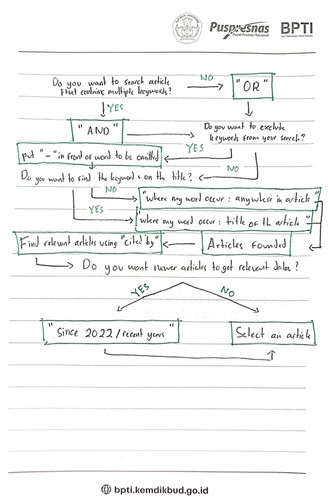 Puspresnas
BPTI
Do you want to search article
that contains multiple keywords?
NO
"OR"
YES
"AND"
Do you want to exclude
keywords from your search?
YES
NO
put "-" in front of word to be omitted
Do you want to find the keywords on the title?
NO
"where my word occur : anywhere in article"
YES
"where my word occur : title of the article"
Find relevant articles using "cited by"
Articles founded
Do you want newer articles to get relevant data?
YES
NO
"Since 2022 / recent years"
Select an article
bpti.kemdikbud.go.id